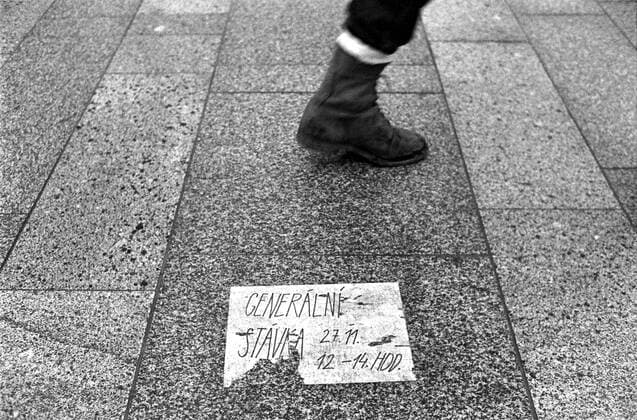 GENERÁLNÍ
STÁVKA 27.11.
12 – 14. HOD.